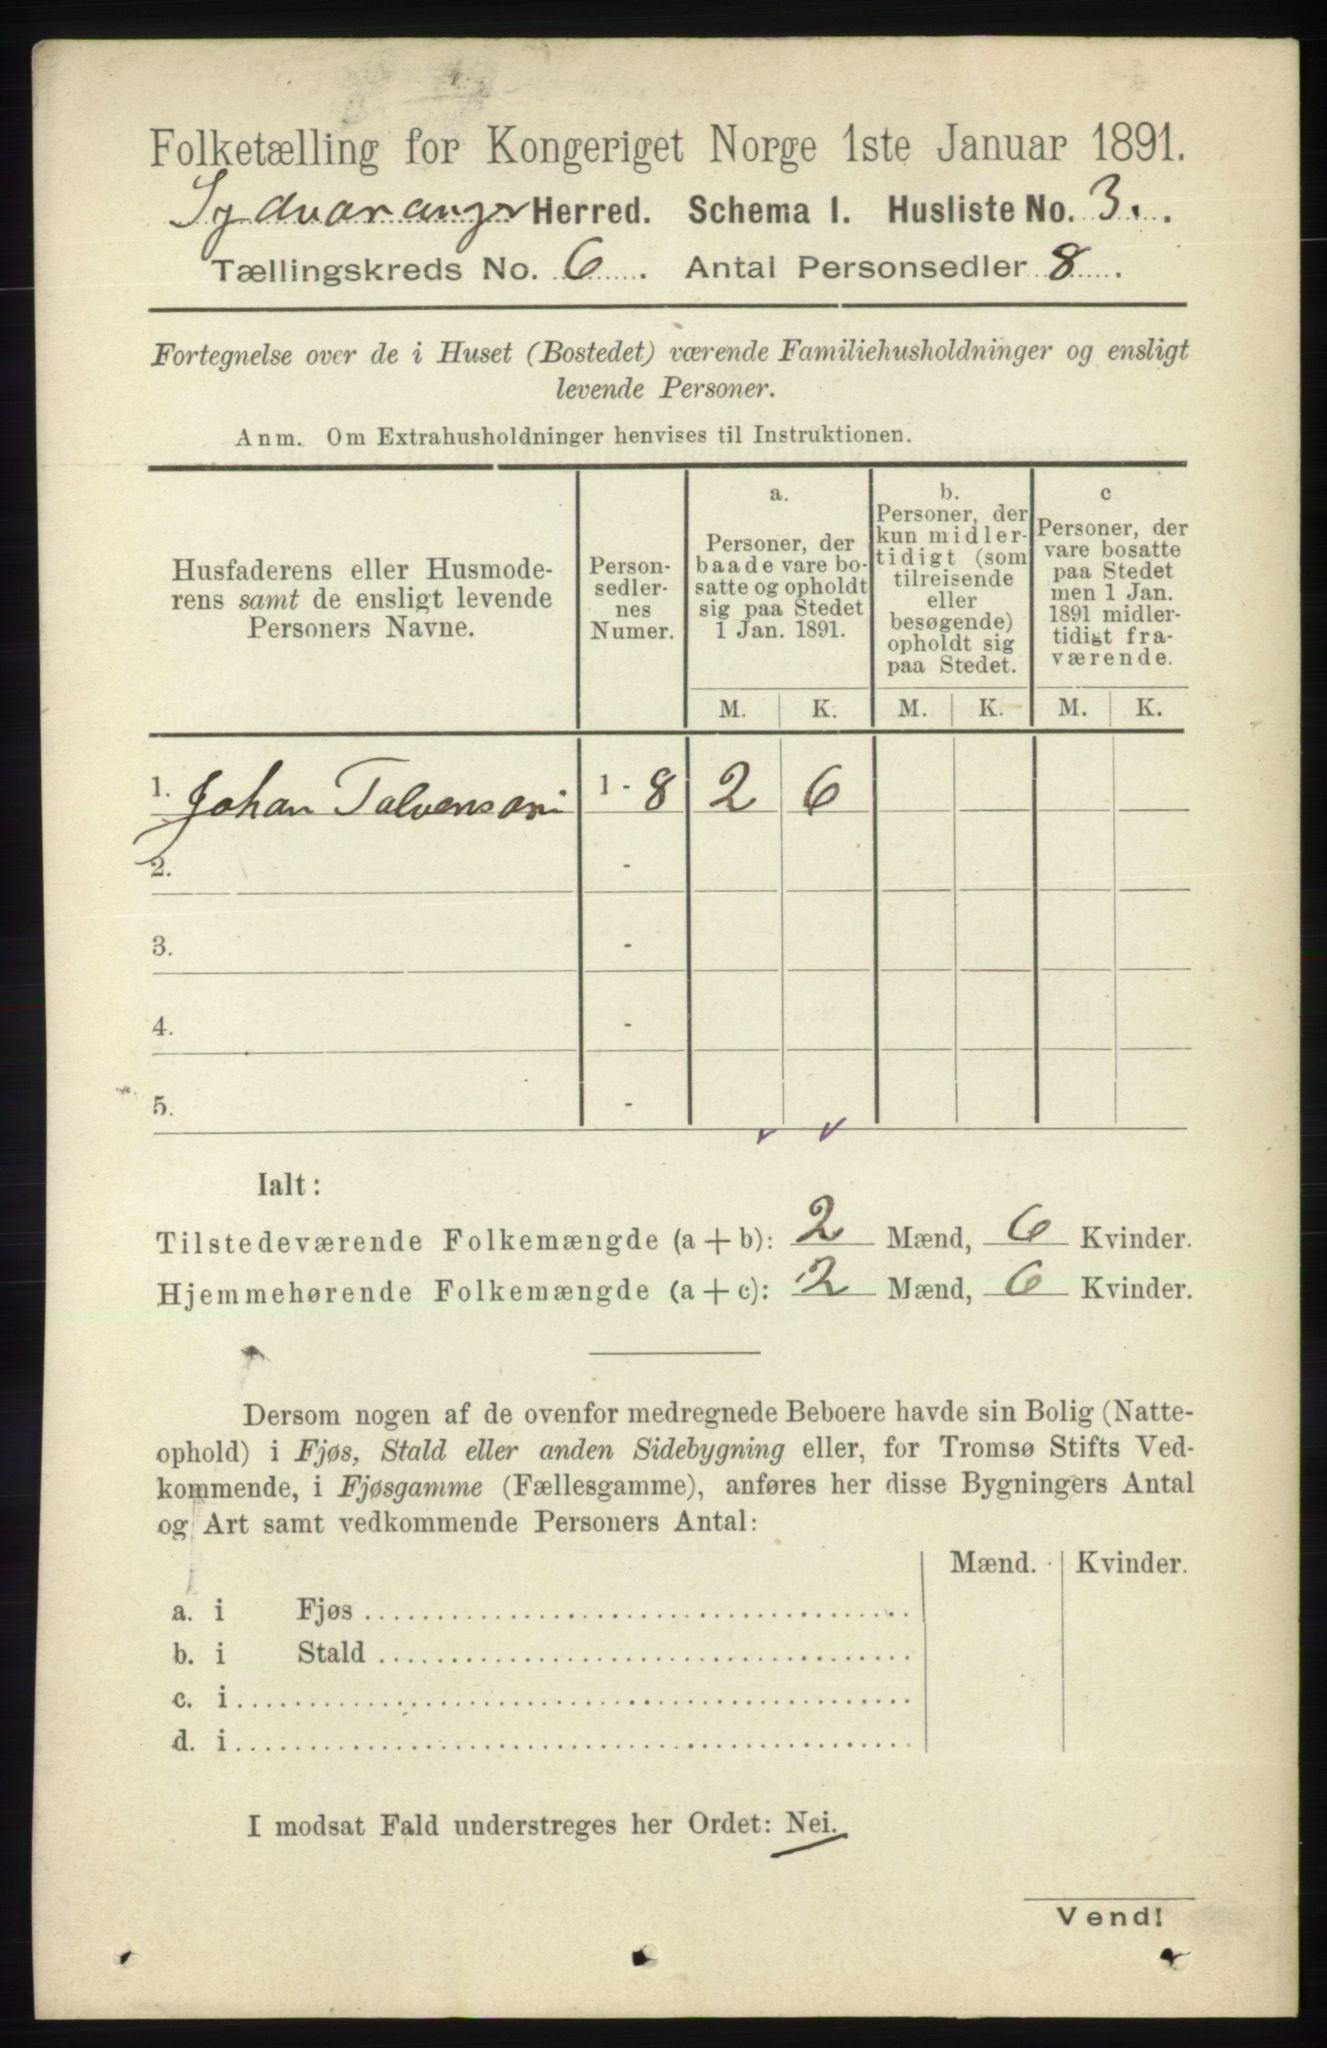 Folketælling for Kongeriget Norge 1ste Januar 1891.
Sydvaranger Herred. Schema 1. Husliste No. 3.
Tællingskreds No. 6. Antal Personsedler 8.
Fortegnelse over de i Huset (Bostedet) værende Familiehusholdninger og ensligt
levende Personer.
Anm. Om Extrahusholdninger henvises til Instruktionen.
Husfaderens eller Husmode-
rens samt de ensligt levende
Personers Navne.
Person-
sedler-
nes
Numer.
a.
Personer, der
baade vare bo-
satte og opholdt
sig paa Stedet
1 Jan. 1891.
b.
Personer, der
kun midler-
tidigt (som
tilreisende
eller
besøgende)
opholdt sig
paa Stedet.
c
Personer, der
vare bosatte
paa Stedet
men 1 Jan.
1891 midler-
tidigt fra-
værende.
M. K. M. K. M. K.
1. Johan Talvensari 1 - 8 2 6
2. -
3. -
4. -
5. -
Ialt:
Tilstedeværende Folkemængde (a + b): 2 Mænd, 6 Kvinder.
Hjemmehørende Folkemængde (a + c): 2 Mænd, 6 Kvinder.
Dersom nogen af de ovenfor medregnede Beboere havde sin Bolig (Natte-
ophold) i Fjøs, Stald eller anden Sidebygning eller, for Tromsø Stifts Ved-
kommende, i Fjøsgamme (Fællesgamme), anføres her disse Bygningers Antal
og Art samt vedkommende Personers Antal:
Mænd. Kvinder.
a. i Fjøs
b. i Stald
c. i
d. i
I modsat Fald understreges her Ordet: Nei.
Vend!